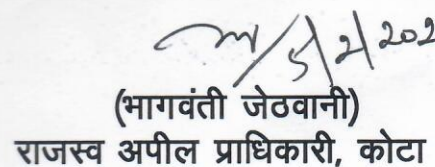 5/2/202
(भागवंती जेठवानी)
राजस्व अपील प्राधिकारी, कोटा